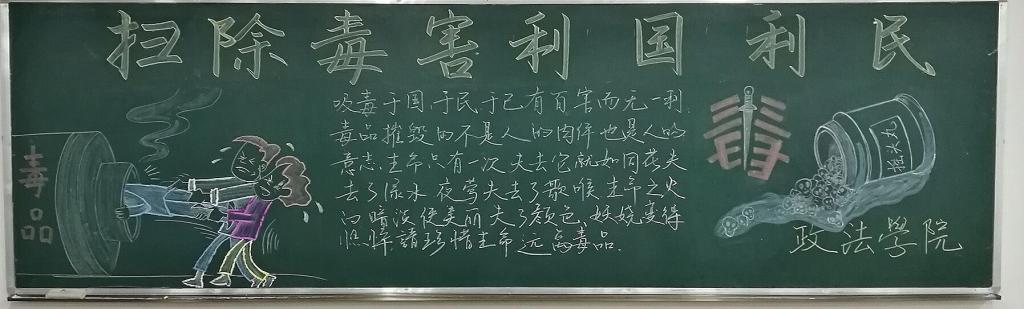 扫除毒害利国利民
毒品
吸毒于国于民于己有百害而无一利.
毒品摧毁的不是人的肉体也是人的
意志.生命只有一次失去它就如同花失
去了绿水夜莺失去了歌喉生命之火
白暗淡使美丽失了颜色妖娆变得
憔悴請珍惜生命远离毒品.
毒
摇头丸
政法學院